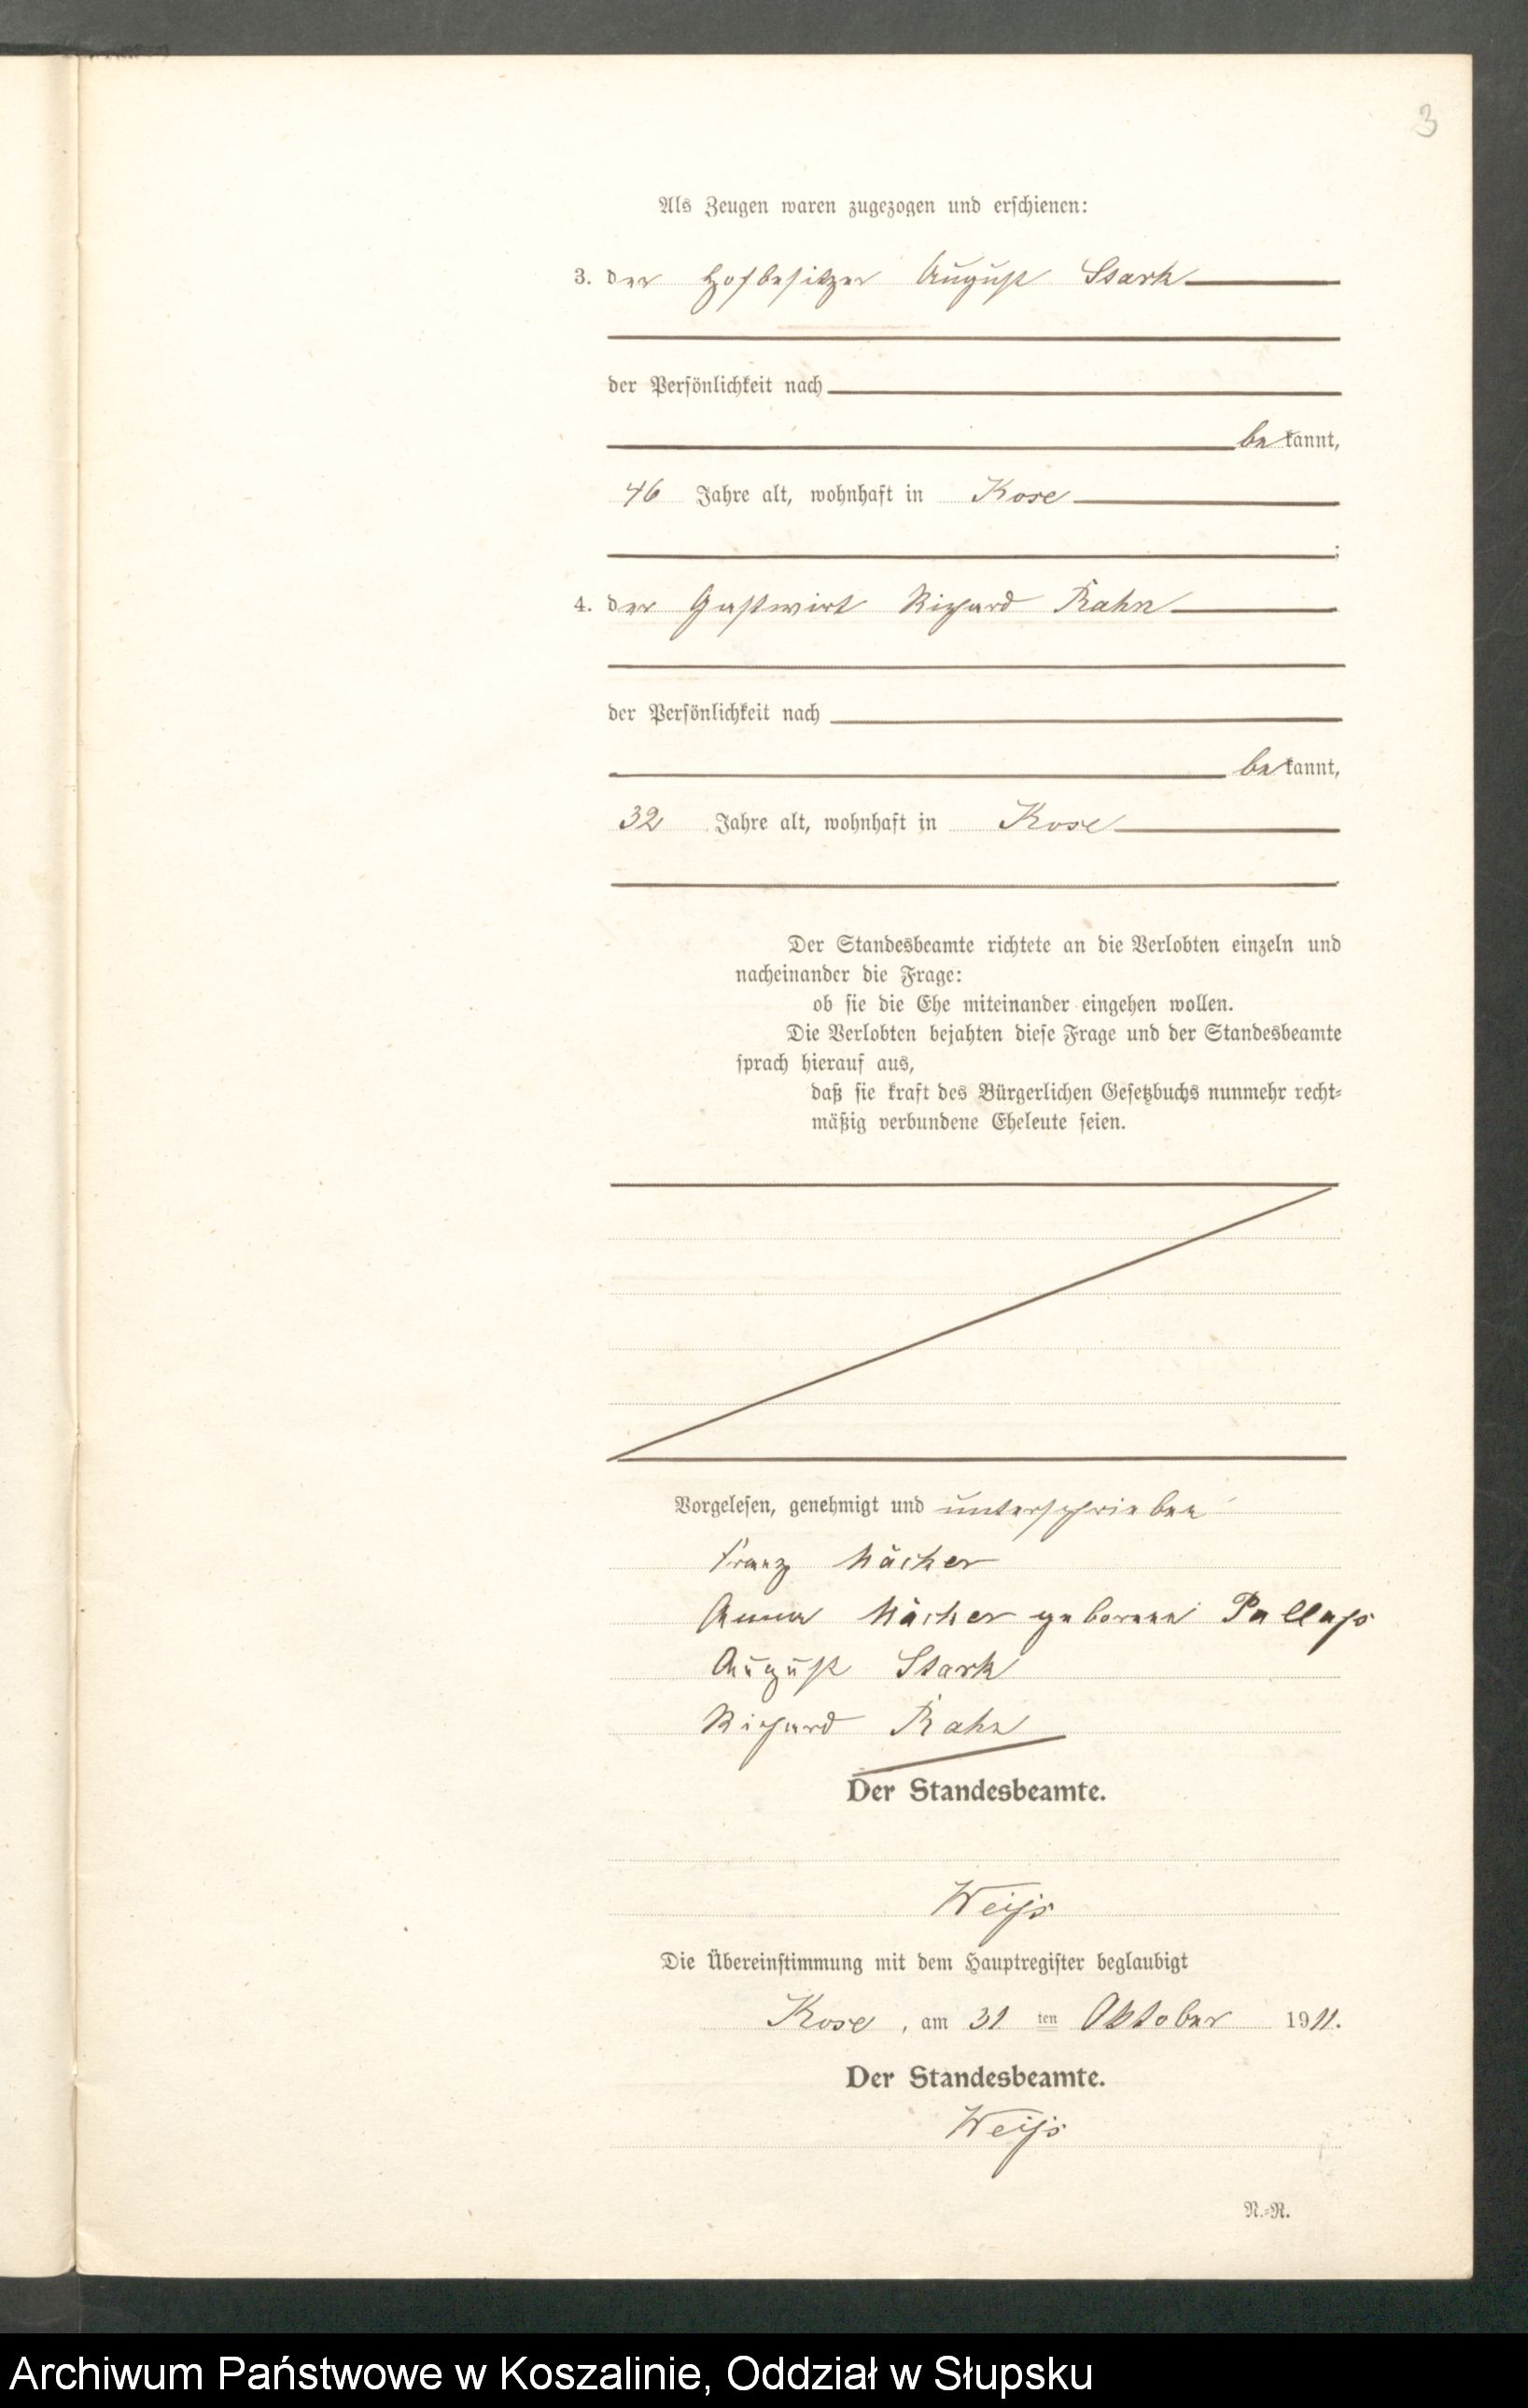 3
Als Zeugen waren zugezogen und erschienen:
3. der Hofbesitzer August Stark
der Persönlichkeit nach
bekannt,
46 Jahre alt, wohnhaft in Kose
;
4. der Gastwirt Richard Rahn
der Persönlichkeit nach
bekannt,
32 Jahre alt, wohnhaft in Kose
Der Standesbeamte richtete an die Verlobten einzeln und
nacheinander die Frage:
ob sie die Ehe miteinander eingehen wollen.
Die Verlobten bejahten diese Frage und der Standesbeamte
sprach hierauf aus,
daß sie kraft des Bürgerlichen Gesetzbuchs nunmehr recht-
mäßig verbundene Eheleute seien.
Vorgelesen, genehmigt und unterschrieben
Franz Mächer
Anna Mächer geborene Pallass
August Stark
Richard Rahn
Der Standesbeamte.
Weiss
Die Übereinstimmung mit dem Hauptregister beglaubigt
Kose, am 31 ten Oktober 1911.
Der Standesbeamte.
Weiss
N.-R.
Archiwum Państwowe w Koszalinie, Oddział w Słupsku